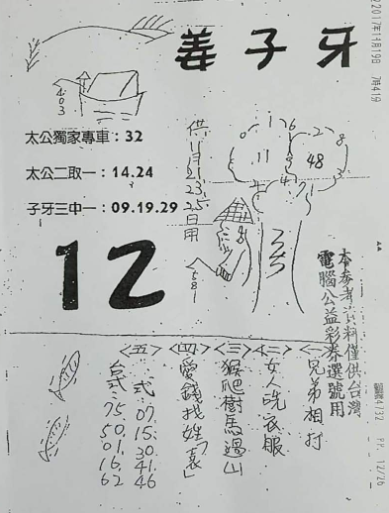 姜子牙
2017年11月19日
太公獨家專車：32
太公二取一：14.24
子牙三中一：09.19.29
12
供11月21.23.25日用
11
48
本參考資料僅供台灣
電腦公益彩券選號用
<一>兄弟相打
<二>女人洗衣服
<三>猴爬樹馬過山
<四>愛錢找姓「袁」
<五>一式:07.15.30.41.46
台式:75.50.01.16.62